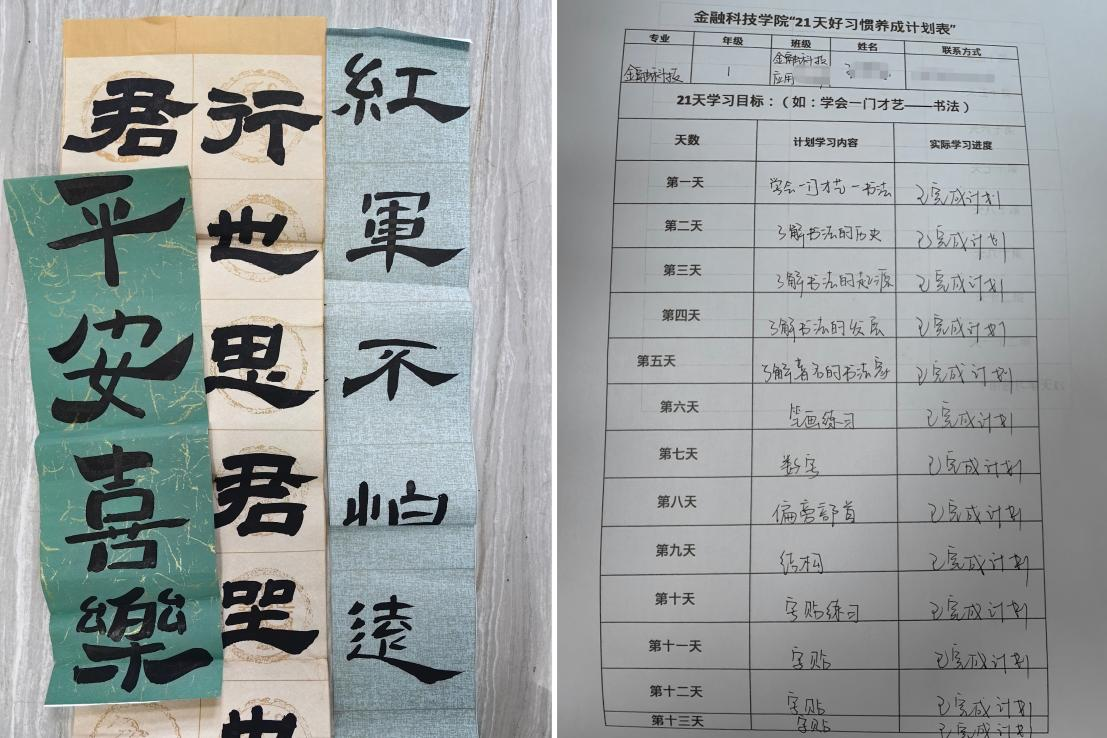 紅軍不怕遠
行也思君坐也
君
平安喜樂
金融科技学院“21天好习惯养成计划表”
专业 年级 班级 姓名 联系方式
金融科技 1 金融科技应用
21天学习目标：（如：学会一门才艺——书法）
天数 计划学习内容 实际学习进度
第一天 学会一门才艺-书法 已完成计划
第二天 了解书法的历史 已完成计划
第三天 了解书法的起源 已完成计划
第四天 了解书法的发展 已完成计划
第五天 了解著名的书法家 已完成计划
第六天 笔画练习 已完成计划
第七天 数字 已完成计划
第八天 偏旁部首 已完成计划
第九天 结构 已完成计划
第十天 字贴练习 已完成计划
第十一天 字贴 已完成计划
第十二天 字贴 已完成计划
第十三天 字贴 已完成计划